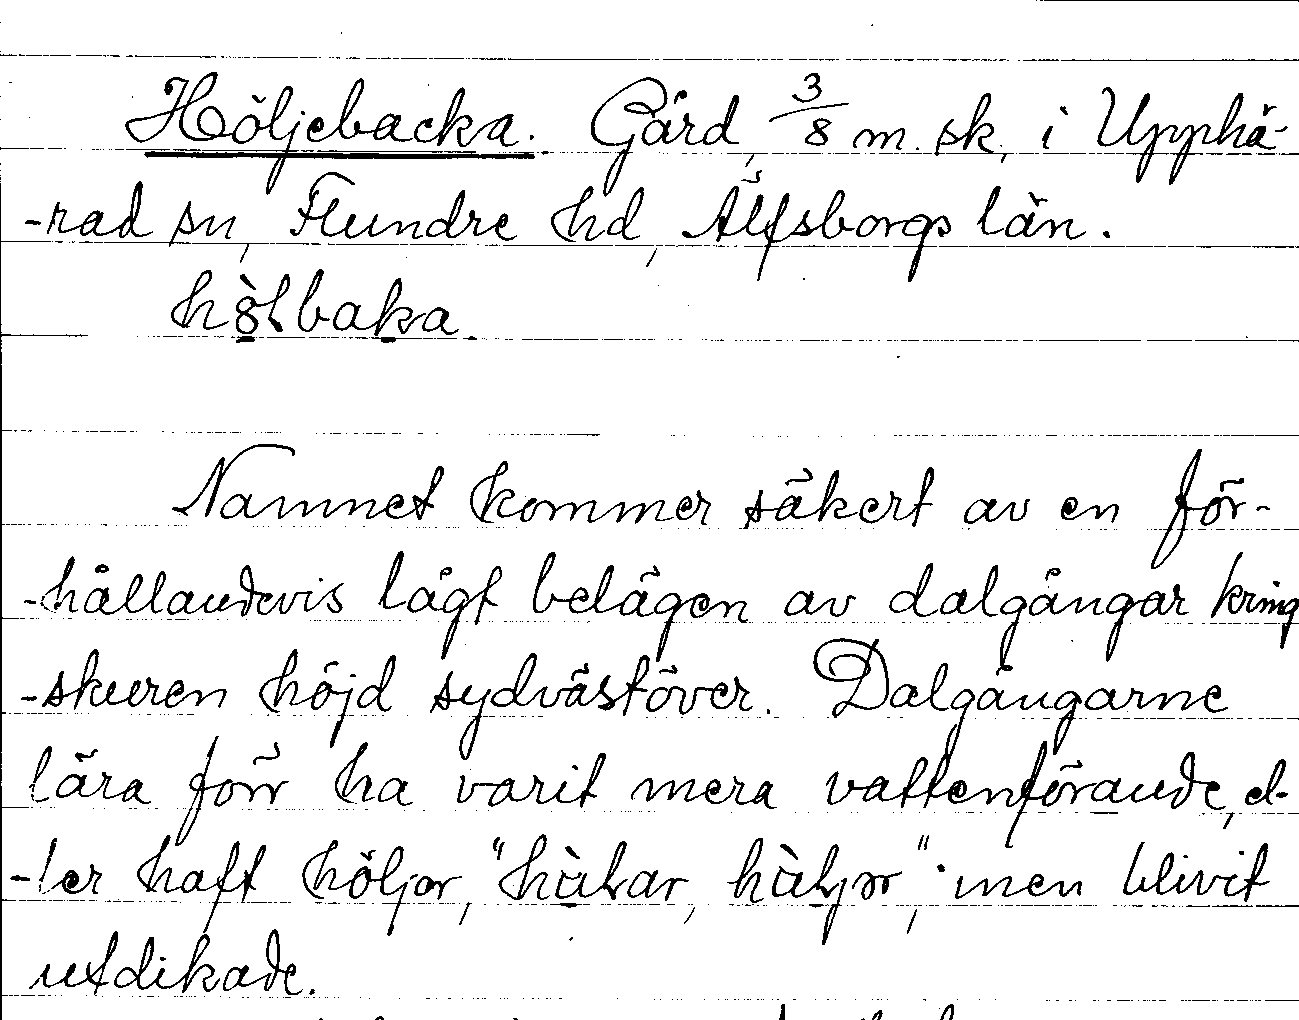 Höljebacka. Gård, 3/8 m. sk, i Upphä-
-rad sn, Flundre hd, Älfsborgs län.
Namnet kommer säkert av en för-
-hållandevis lågt belägen av dalgångar kring
-skuren höjd sydvästöver. Dalgångarne
lära förr ha varit mera vattenförande, el-
-ler haft höljor, men blivit
utdikade.